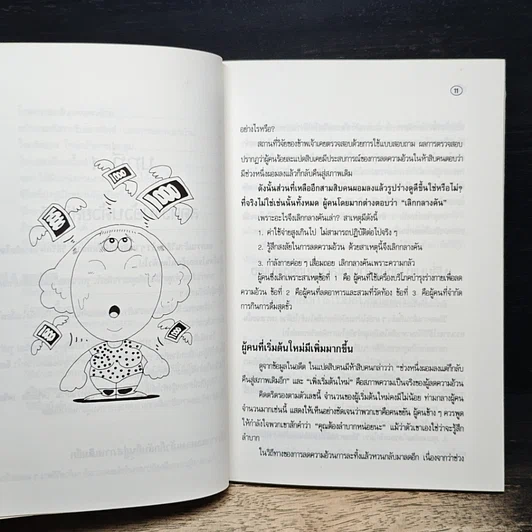 100
100
100
100
100
100
11
อย่างไรหรือ?
สถานที่วิจัยของข้าพเจ้าเคยตรวจสอบด้วยการใช้แบบสอบถาม ผลการตรวจสอบ
ปรากฏว่าผู้คนร้อยละแปดสิบเคยมีประสบการณ์ของการลดความอ้วนในห้าสิบคนตอบว่า
มีช่วงหนึ่งผอมลงแล้วก็กลับคืนสู่สภาพเดิม
ดังนั้นส่วนที่เหลืออีกสามสิบคนผอมลงแล้วรูปร่างดูดีขึ้นใช่หรือไม่ๆ
ที่จริงไม่ใช่เช่นนั้นทั้งหมด ผู้คนโดยมากต่างตอบว่า "เลิกกลางคัน"
เพราะอะไรจึงเลิกกลางคันเล่า? สาเหตุมีดังนี้
1. ค่าใช้จ่ายสูงเกินไป ไม่สามารถปฏิบัติต่อไปจริง ๆ
2. รู้สึกสงสัยในการลดความอ้วน ด้วยสาเหตุนี้จึงเลิกกลางคัน
3. กำลังกายค่อย ๆ เสื่อมถอย เลิกกลางคันเพราะความกลัว
ผู้คนซึ่งเลิกเพราะสาเหตุข้อที่ 1 คือ ผู้คนที่ใช้เครื่องบริโภคบำรุงร่างกายเพื่อลด
ความอ้วน ข้อที่ 2 คือผู้คนที่ลดอาหารและสวมที่รัดท้อง ข้อที่ 3 คือผู้คนที่จำกัด
การกินการดื่มสุดขั้ว
ผู้คนที่เริ่มต้นใหม่มีเพิ่มมากขึ้น
ดูจากข้อมูลในอดีต ในแปดสิบคนมีห้าสิบคนกล่าวว่า "ช่วงหนึ่งผอมลงแต่ก็กลับ
คืนสู่สภาพเดิมอีก" และ "เพิ่งเริ่มต้นใหม่" คือสภาพความเป็นจริงของผู้ลดความอ้วน
คิดตริตรองตามตัวเลขนี้ จำนวนของผู้เริ่มต้นใหม่คงมีไม่น้อย ท่ามกลางผู้คน
จำนวนมากเช่นนี้ แสดงให้เห็นอย่างชัดเจนว่าพวกเขาคือคนขยัน ผู้คนข้าง ๆ ควรพูด
ให้กำลังใจพวกเขาสักคำว่า "คุณต้องลำบากหน่อยนะ" แม้ว่าตัวเขาเองใช่ว่าจะรู้สึก
ลำบาก
ในวิถีทางของการลดความอ้วนการละทิ้งแล้วหวนกลับมาลดอีก เนื่องจากว่าช่วง